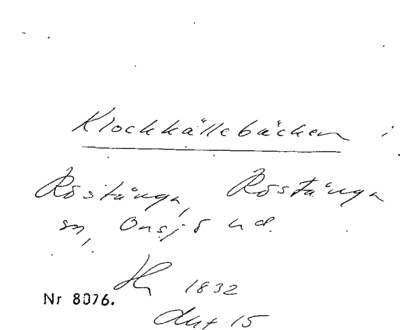 Klockkällebäcken i
Röstånga, Röstånga
sn, Onsjö hd.
1832
Nr 8076.
15